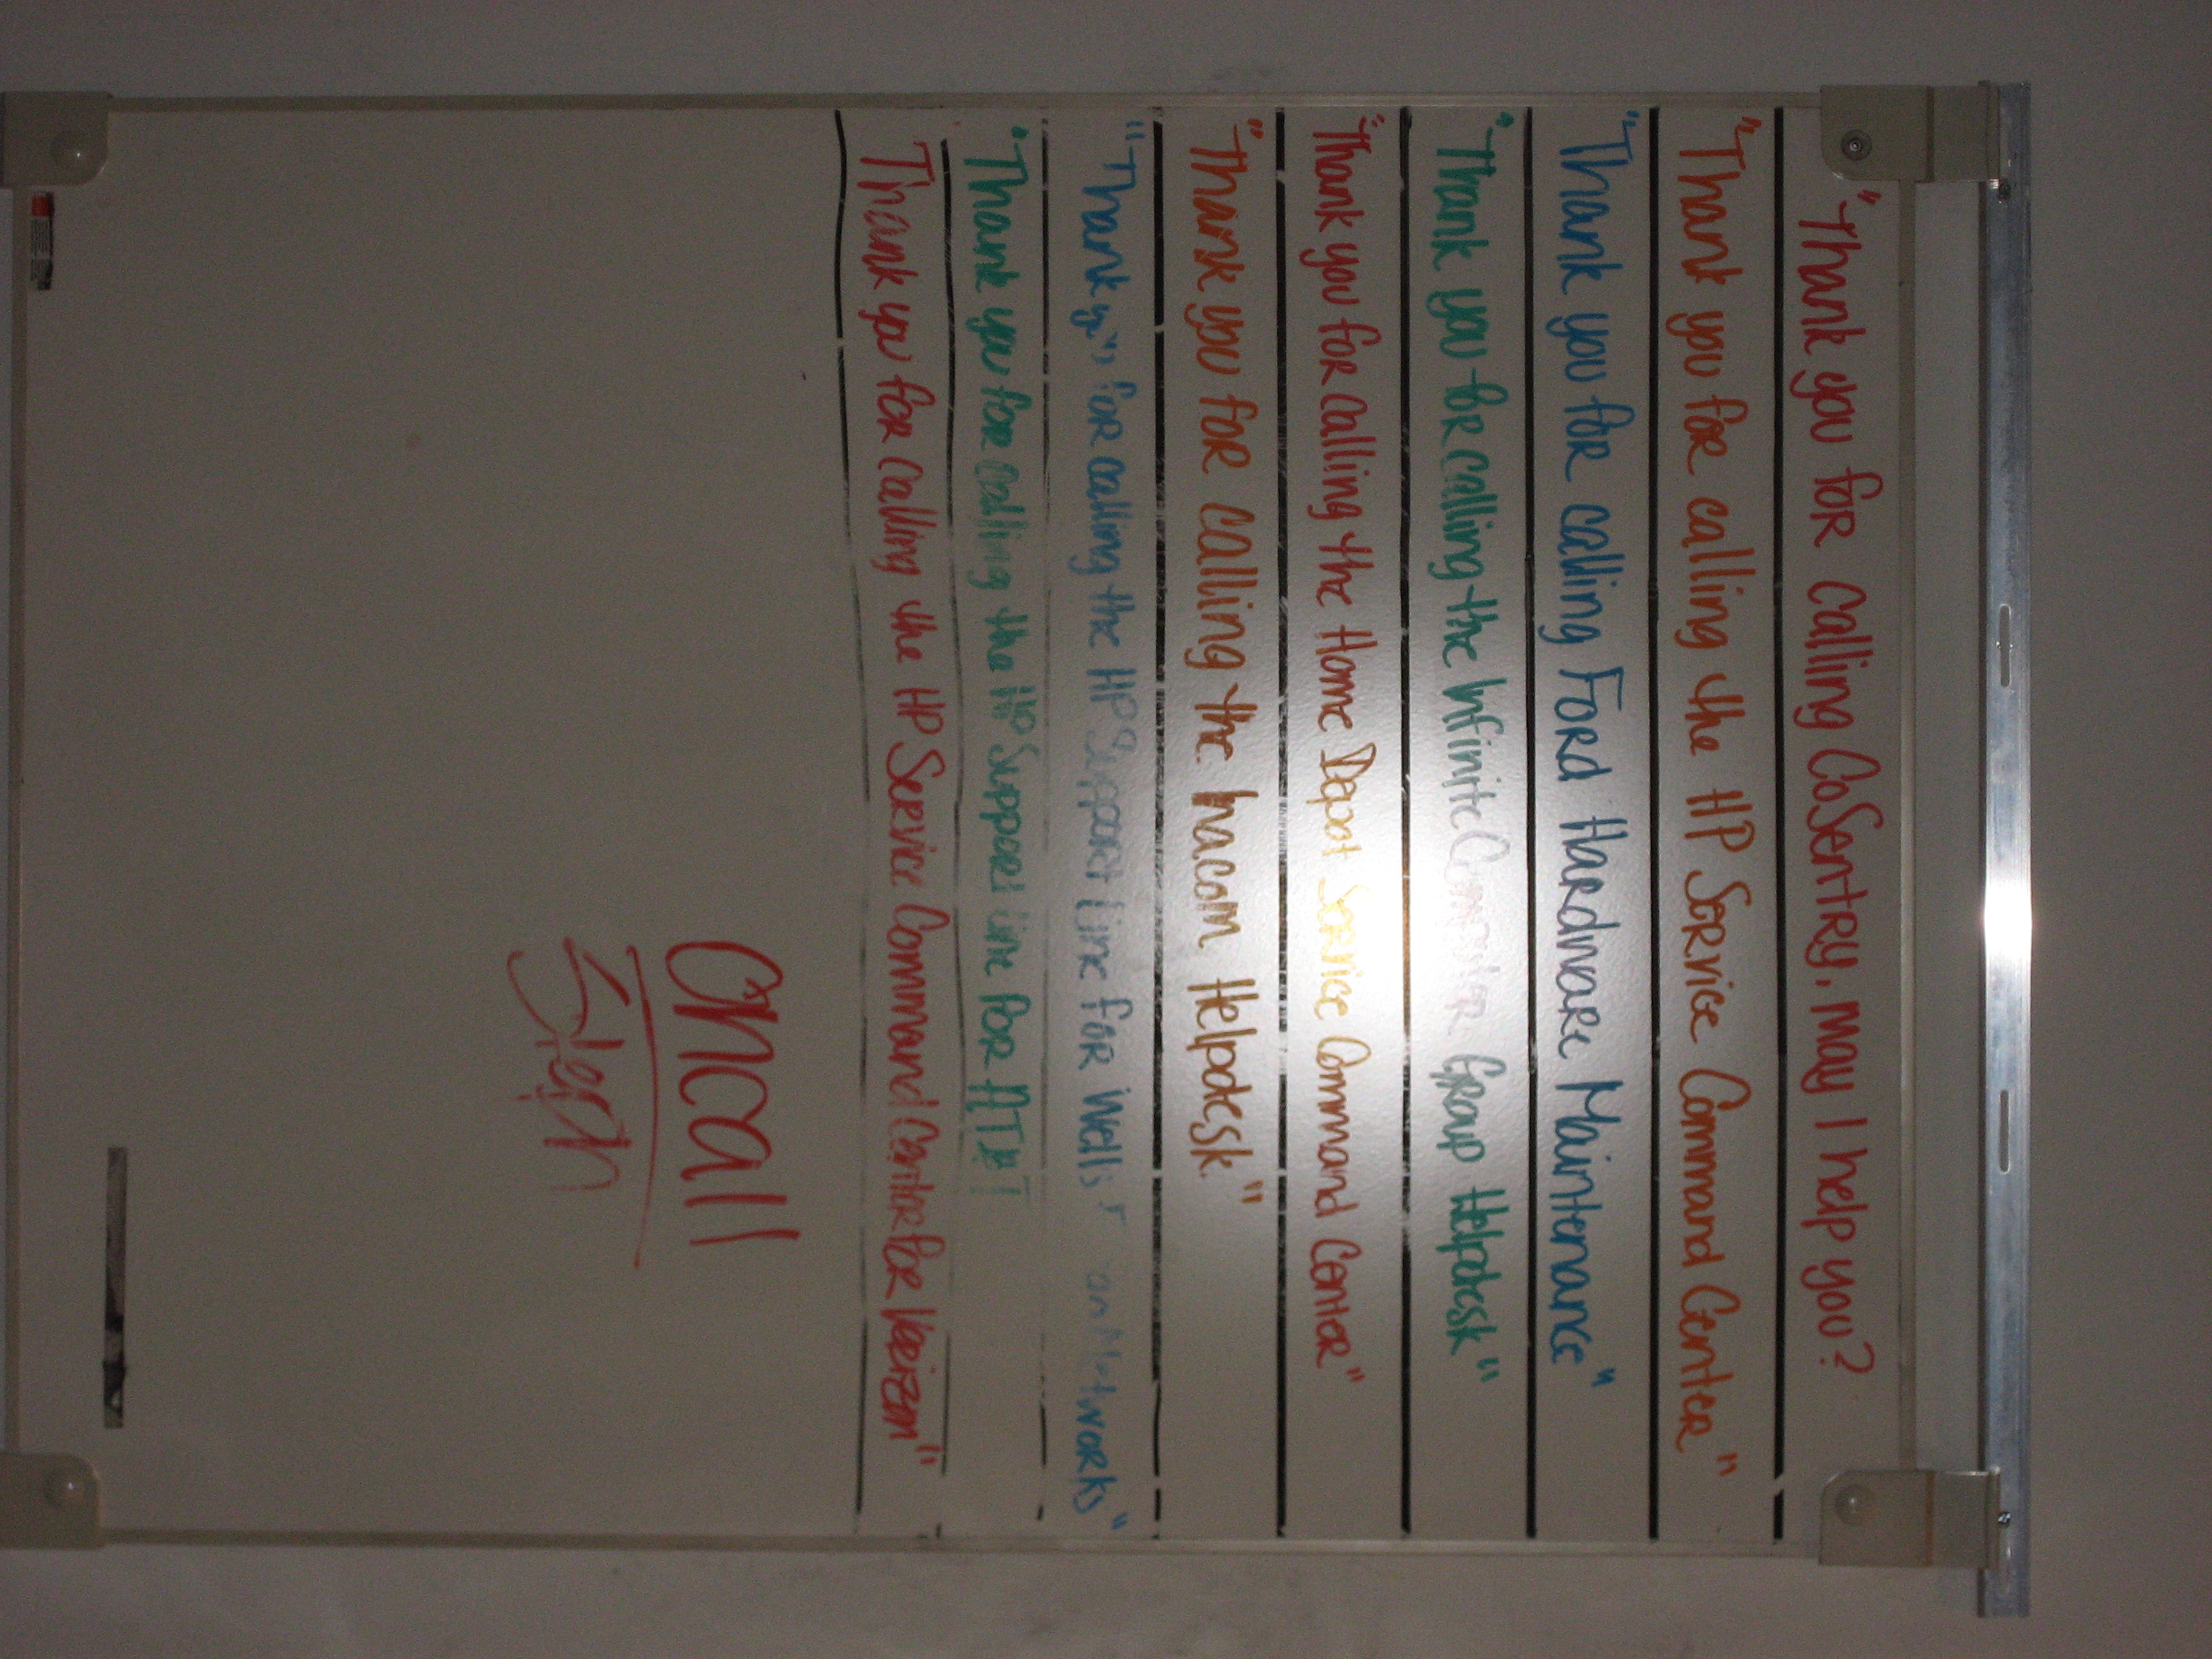 "Thank you for calling CoSentry, may I help you?
"Thank you for calling the HP Service Command Center"
"Thank you for calling Ford Hardware Maintenance"
"Thank you for calling the Infinite Computer Group Helpdesk"
"Thank you for calling the Home Depot Service Command Center"
"Thank you for calling the Inacom Helpdesk."
"Thank you for calling the HP Support Line for Wells Networks"
"Thank you for calling the HP Support Line for AT&T
Thank you for calling the HP Service Command Center for Verizon"
Oncall